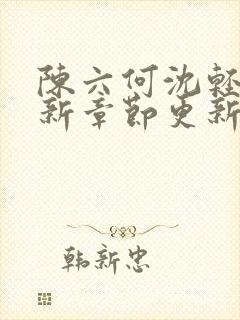 陳六何沈輕
新章節更新
韩新忠